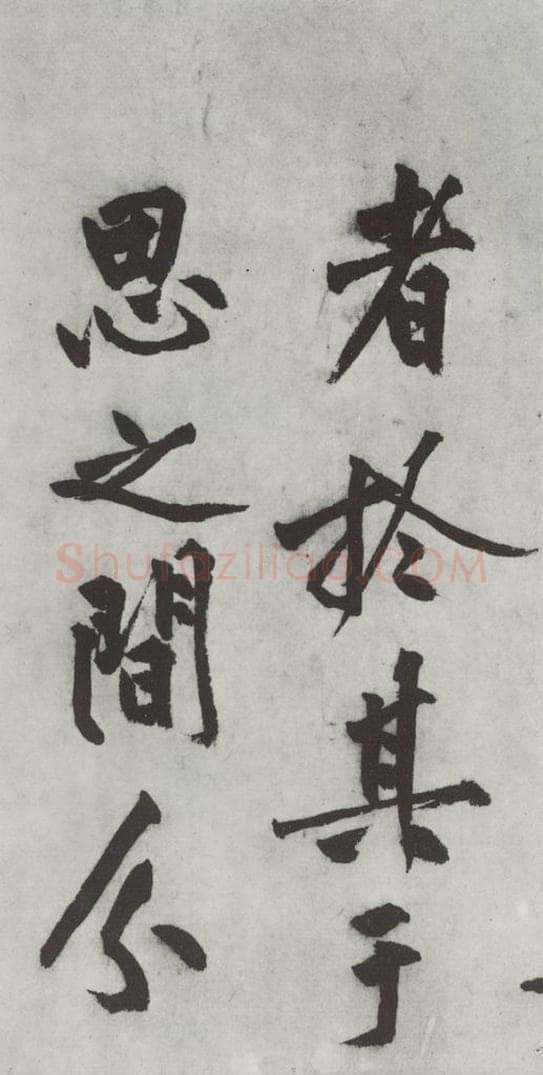 者於其于
思之間分
Shufaziliao.COM